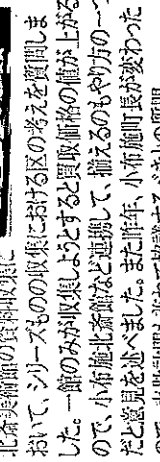 北斎美術館の資料収集に
おいて、シリーズものの収集における区の考えを質問しま
した。一館のみが収集しようとすると買取価格の値が上がる
ので、小布施北斎館など連携して、揃えるのもやり方の一つ
だと意見を述べました。また昨年、小布施町長が変わった